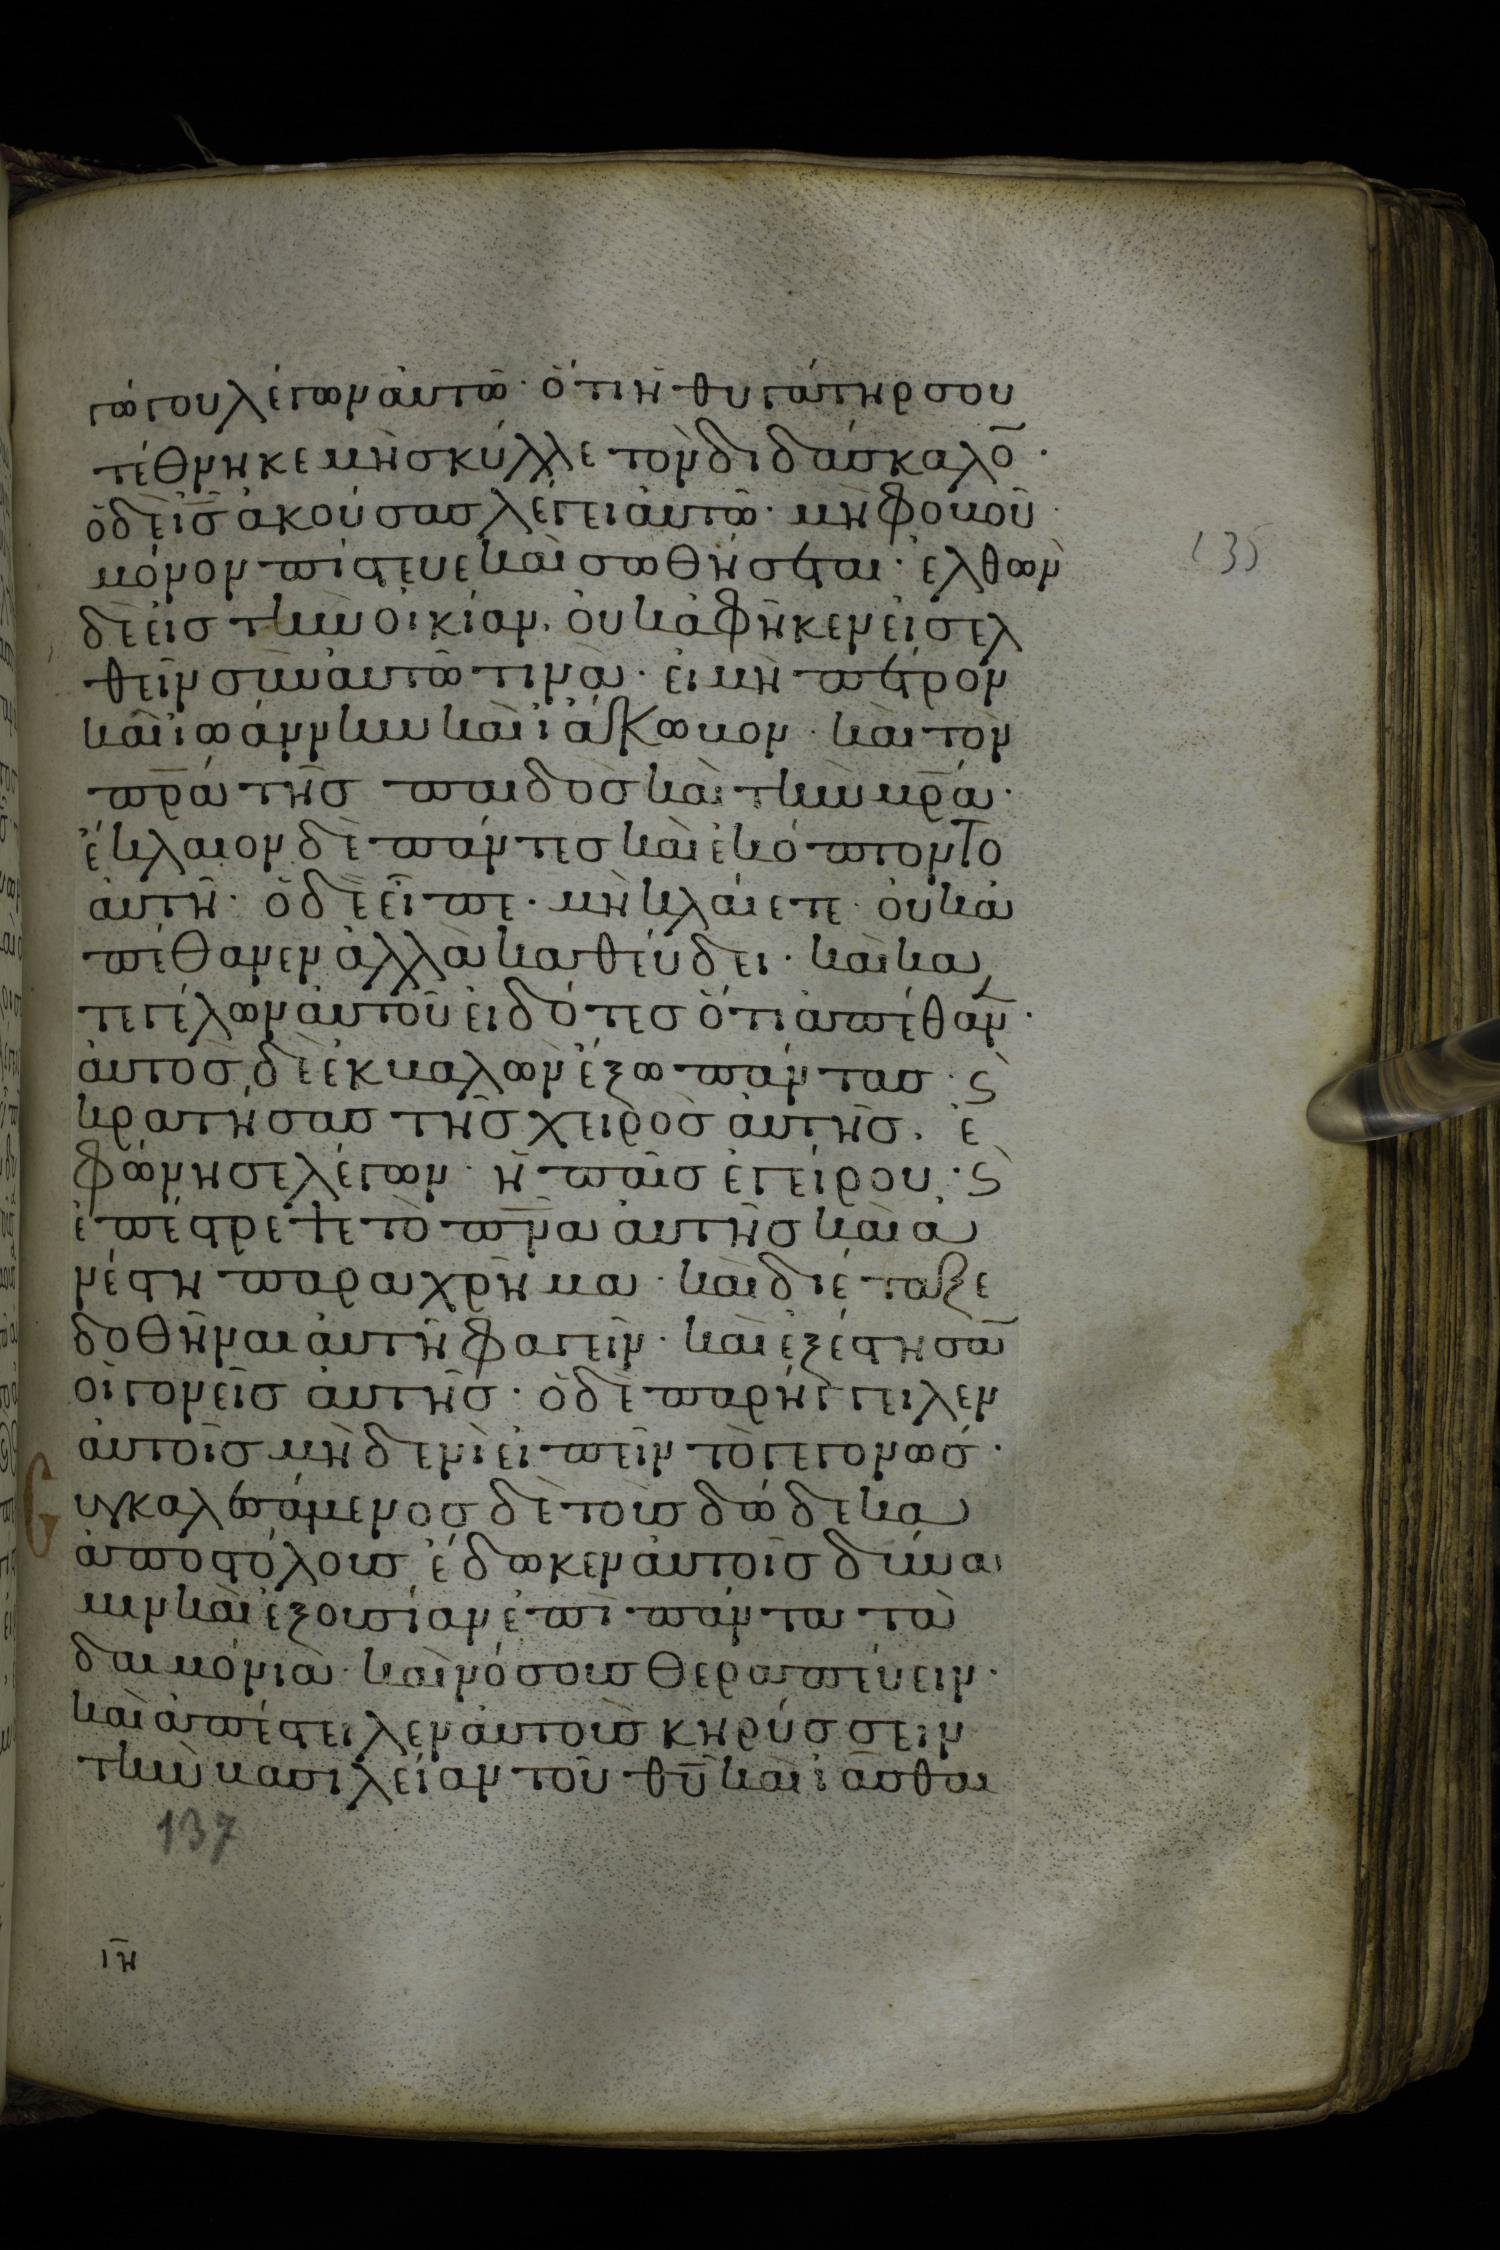 γώγου λέγων αὐτῶ· ὅτι ἡ θυγάτηρ σου
τέθνηκε μὴ σκύλλε τὸν διδάσκαλο̅·
ὁ δὲ ι̅σ̅ ἀκούσας λέγει αὐτῶ· μὴ φοβοῦ·
μόνον πίστευε καὶ σωθήσεται· ἐλθὼν
δὲ εἰς τὴν οἰκίαν· οὐκ ἀφῆκεν εἰσελ
θεῖν σὺν αὐτῶ τινὰ· εἰ μὴ πέτρον
καὶ ἰωάννην καὶ ἰάκωβον· καὶ τὸν
π̅ρ̅α τῆς παιδὸς καὶ τὴν μ̅ρ̅α·
ἔκλαιον δὲ πάντες καὶ ἐκόπτοντο
αὐτὴν· ὁ δὲ εἶπε· μὴ κλαίετε· οὐκ ἀ
πέθανεν ἀλλὰ καθεύδει· καὶ κα
τεγέλων αὐτοῦ εἰδότες ὅτι ἀπέθαν̅·
αὐτὸς δὲ ἐκβαλὼν ἔξω πάντας· ϛ̀
κρατήσας τῆς χειρὸς αὐτῆς· ἐ
φώνησε λέγων· ἡ παῖς ἐγείρου· ϛ̀
ἐπέστρεψε τὸ π̅ν̅α αὐτῆς καὶ ἀ
νέστη παραχρῆμα· καὶ διέταξε
δοθῆναι αὐτῆ φαγεῖν· καὶ ἐξέστησα̅
οἱ γονεῖς αὐτῆς· ὁ δὲ παρήγγειλεν
αὐτοῖς μηδενὶ εἰπεῖν τὸ γεγονώς·
Συγκαλεσάμενος δὲ τοὺς δώδεκα
ἀποστόλους, ἔδωκεν αὐτοῖς δύνα
μιν καὶ ἐξουσίαν ἐπὶ πάντα τὰ
δαιμόνια· καὶ νόσους θεραπεύειν·
καὶ ἀπέστειλεν αὐτοὺς κηρύσσειν
τὴν βασιλείαν τοῦ θ̅υ̅ καὶ ἰᾶσθαι
135
137
ιη̅